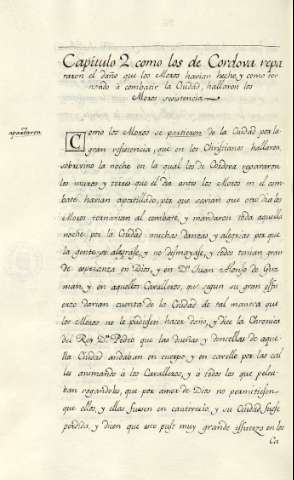 Capitulo 2. como los de Cordova repa
raron el daño que los Moros havian hecho, y como tor
nando à combatir la Ciudad, hallaron los
Moros resistencia
apartaron
Como los Moros se partieron de la Ciudad por la
gran resistencia que en los Christianos hallaron,
sobrevino la noche en la qual los de Cordova repararon
los muros, y torres que el dia antes los Moros en el com
bate, havian aportillado, por que creian que otro dia los
Moros tornarian al combate, y mandaron toda aquella
noche por la Ciudad muchas danzas, y alegrias por que
la gente se alegrase, y no desmayase, y todos tenian gran
de esperanza en Dios, y en Dn. Juan Alonso de Guz
man, y en aquellos Cavalleros, que segun su gran esfu
erzo darian cuenta de la Ciudad de tal manera que
los Moros no le pudiesen hacer daño, y dice la Chronica
del Rey Dn. Pedro que las dueñas y doncellas de aque
lla Ciudad andaban en cuerpo, y en cavello por las cal
les animando à los Cavalleros, y à todos los que pelea
ban rogandoles, que por amor de Dios no permitiesen
que ellos, y ellas fuesen en cautiverio, y su Ciudad fuese
perdida, y dicen que esto puso muy grande esfuerzo en los
Ca